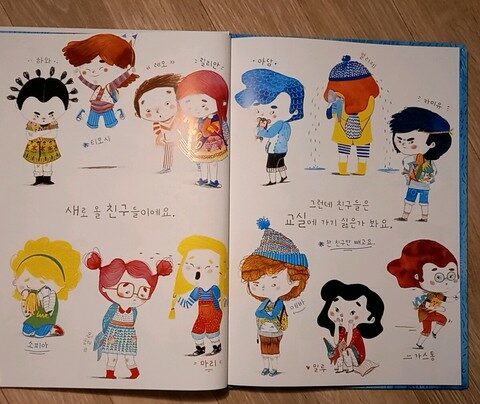 하와
레오
릴리안
티모시
새로 올 친구들이에요.
소피아
마리
아담
카이유
그런데 친구들은
교실에 가기 싫은가 봐요.
한 친구만 빼고요.
말루
가스통